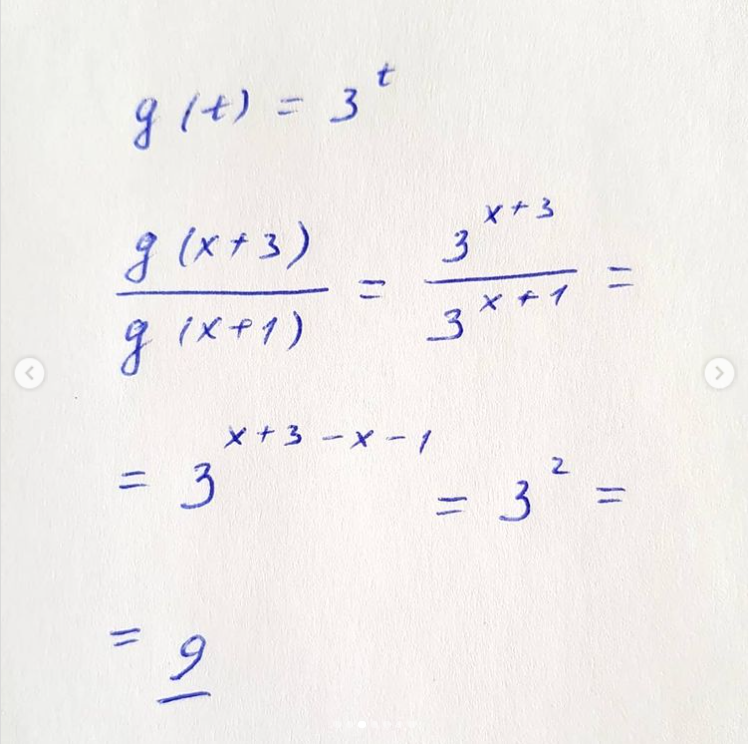 g(t) = 3^t
g(x+3) / g(x+1) = 3^(x+3) / 3^(x+1) =
= 3^(x+3-x-1) = 3^2 =
= 9